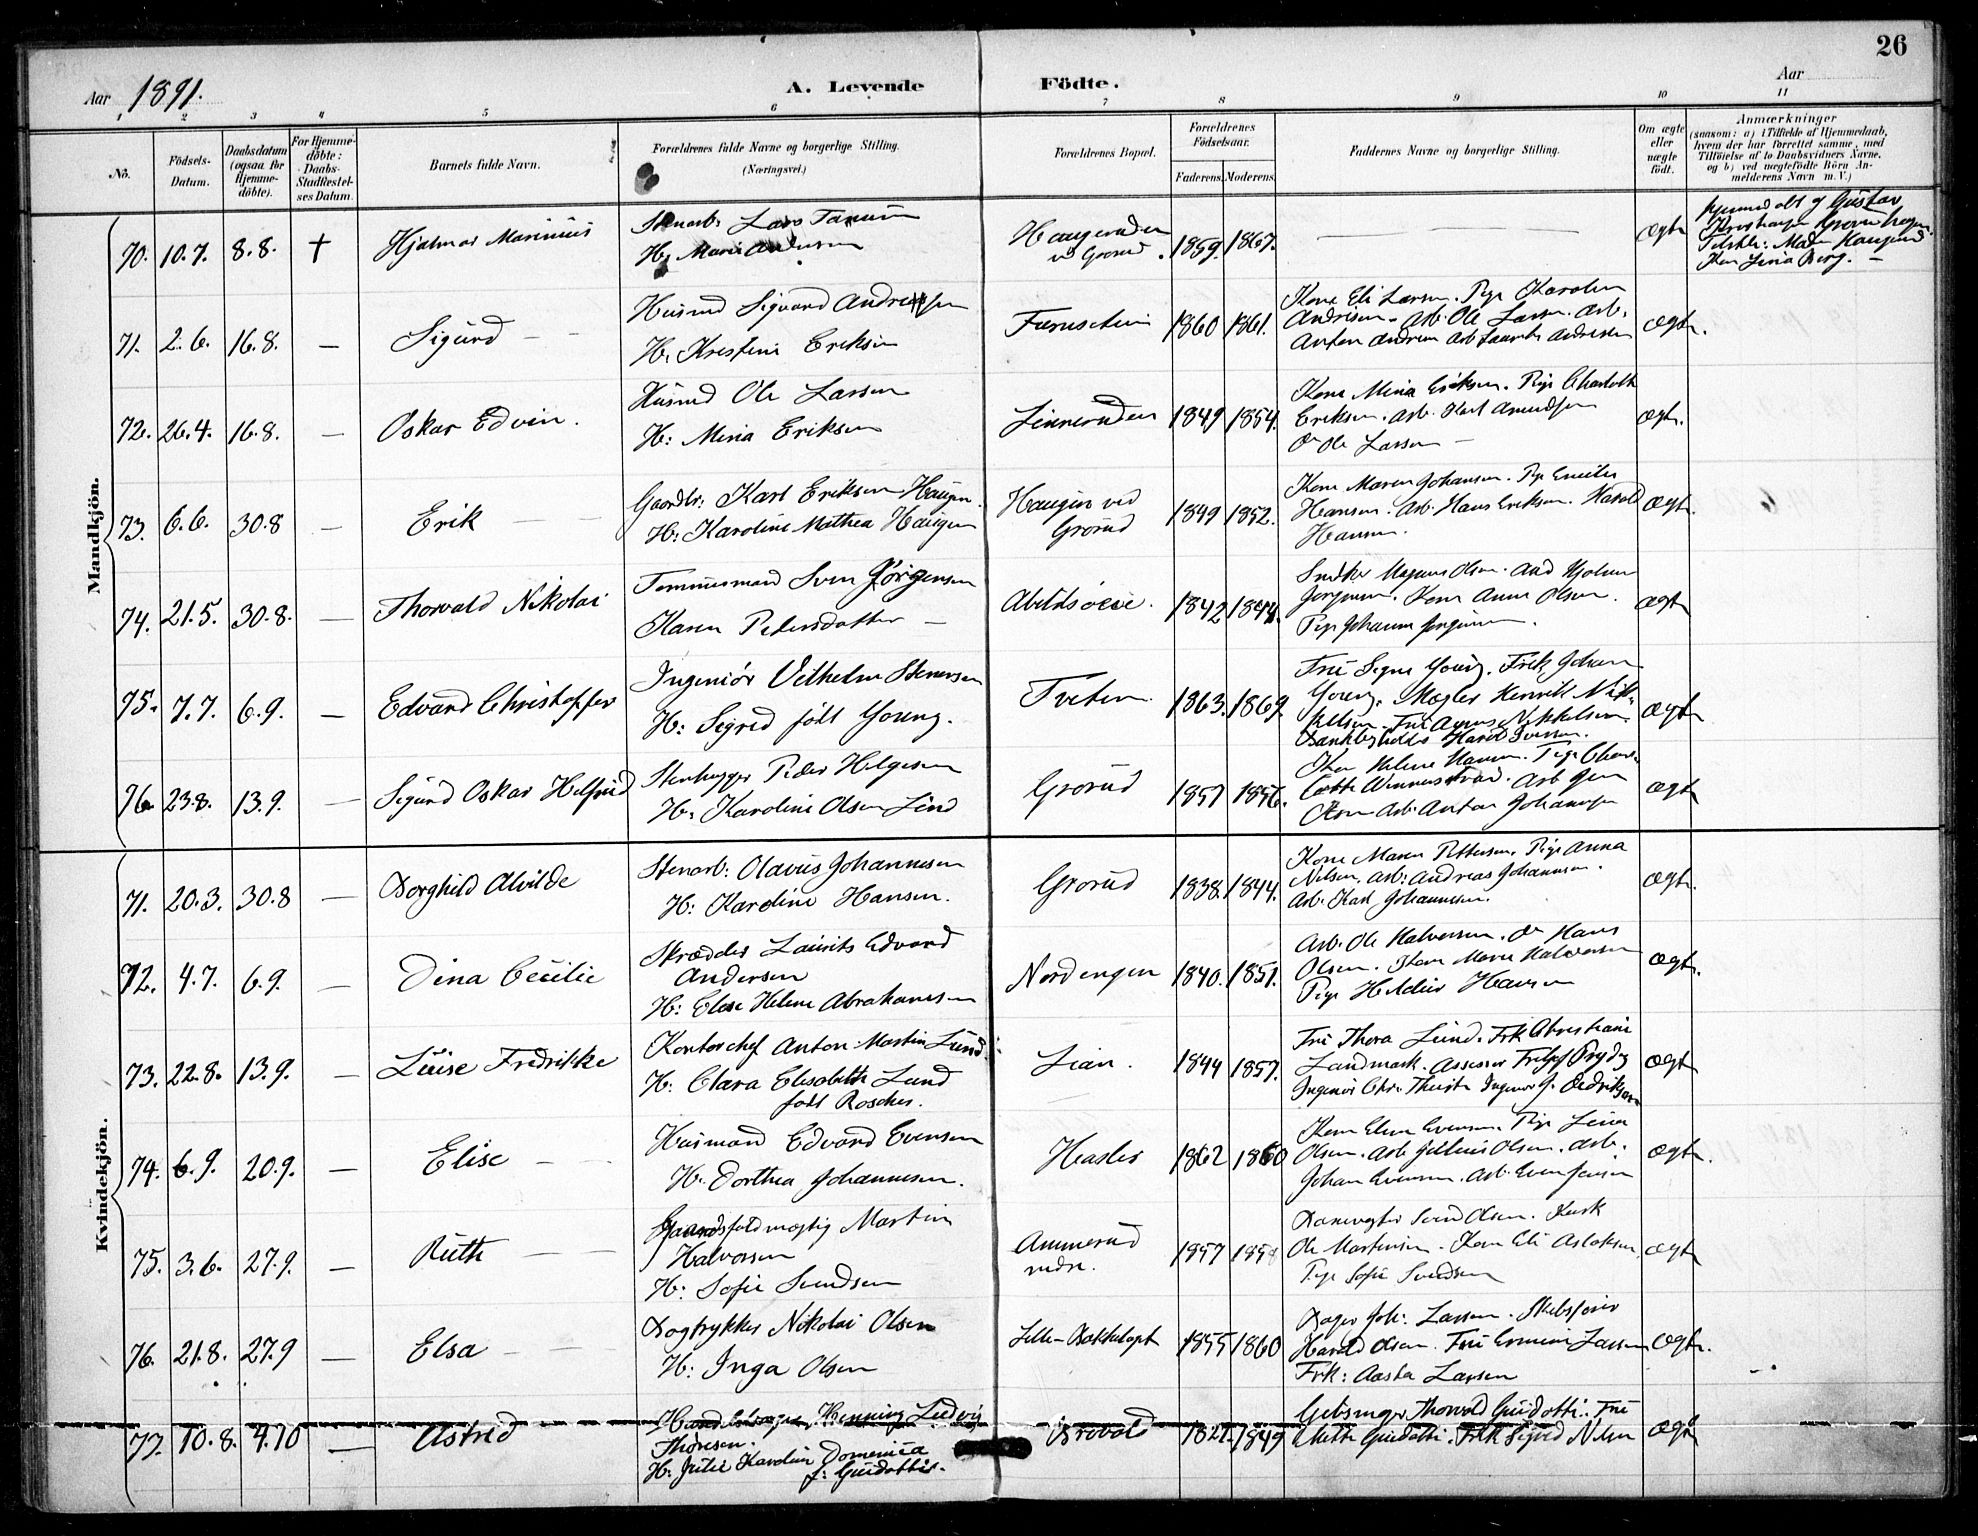 26
Aar 1891.
A. Levende Födte.
Aar
1 2 3 4 5 6 7 8 9 10 11
No.
Födsels-Datum.
Daabsdatum (ogsaa for Hjemmedöbte).
For Hjemmedöbte: Daabs-Stadfæstelses Datum.
Barnets fulde Navn.
Forældrenes fulde Navne og borgerlige Stilling. (Næringsvei.)
Forældrenes Bopæl.
Forældrenes Födselsaar.
Faderens. Moderens.
Faddernes Navne og borgerlige Stilling.
Om ægte eller uægte födt.
Anmærkninger
(saasom: a) i Tilfælde af Hjemmedaab, hvem der har forrettet samme, med Tilföielse af to Daabsvidners Navne, og b) ved uægtefödte Börn Anmelderens Navn m. V.)
Mandkjön.
70. 10.7. 8.8. † Hjalmar Marinius
Stenarb: Lars
H: Marie Andersen
Grorud. 1859. 1867. ægte
Gustav
71. 2.6. 16.8. — Sigurd —
Husmd Sigvard Andreassen
H: Kristine Eriksen
Furuseteie 1860 1861.
Kone Eli Larsen. Pige Karoline
Andresen. Arb. Ole Larsen. Arb.
Anton Andresen Arb Andresen
ægte.
72. 26.4. 16.8. — Oskar Edvin.
Husmd Ole Larsen
H: Mina Eriksen
1849 1854.
Kone Mina Eriksen. Pige Charlotte
Eriksen. Arb. Karl Amundsen
Do Ole Larsen —
ægte.
73. 6.6. 30.8 — Erik — —
Gaardbr: Karl Eriksen Haugen.
H: Karoline Mathea Haugen
Haugen ved
Grorud
1849 1852.
Kone Maren Johansen. Pige Emilie
Hansen. Arb. Hans Eriksen. Harald
Hansen.
ægte.
74. 21.5. 30.8. — Thorvald Nikolai
Tømmermand Sven Jörgensen
Karen Petersdatter —
Abildsöeie. 1842 1844.
Snedker Magnus Olsen.
Jørgensen. Kone Anne Olsen.
Pige Johanne Jørgensen.
ægte
75. 7.7. 6.9. — Edvard Christopher
Ingeniör Vilhelm Stenersen
H: Sigrid født Young.
Tveten. 1863. 1869.
Fru Signe Young. Frk Johan
Young. Mægler Henrik Mik-
kelsen. Fru Mikkelsen.
ægte
76. 23.8. 13.9. — Sigurd Oskar Helfrid
Stenhugger Peder Helgesen
H: Karoline Olsen Lind
Grorud 1857 1856.
Kone Helene Hansen. Pige Char-
lotte Arb Jens
Olsen Arb. Anton Johansen
ægte
Kvindekjön.
71. 20.3. 30.8 — Borghild Alvilde
Stenarb: Olavus Johannesen
H: Karoline Hansen.
Grorud 1838. 1844.
Kone Maren Pettersen. Pige Anna
Nilsen. Arb: Andreas Johannesen.
Arb. Karl Johannesen.
ægte.
72. 4.7. 6.9. — Dina Cecilie
Skrædder Laurits Edvard
Andersen
H: Elise Helene Abrahamsen
Nordengen 1840. 1851.
Arb. Ole Halvorsen. Do Hans
Olsen. Kone Marie Halvorsen
Pige Hansen
ægte.
73. 22.8. 13.9. — Luise Fredrikke
Kontorchef Anton Martin Lund
H: Clara Elisabeth Lund
født Roscher.
Lian. 1844 1857.
Fru Thora Lund. Frk Christiane
Landmark. Assessor Prydz
Ingeniör Chr. Ingeniör J. Dedriksen
ægte
74. 6.9. 20.9. — Elise — —
Husmand Edvard Evensen
H: Dorthea Johannesen.
Hasler 1862 1860
Kone Elen Evensen. Pige Lina
Olsen. Arb Julius Olsen. Arb.
Johan Evensen. Arb. Even Jensen
ægte.
75. 3.6. 27.9. — Ruth — —
Gaardsfuldmægtig Martin
Halvorsen
H: Sofie Svendsen
Ammerud
nedre.
1857 1858
Banevogter Svend Olsen. Kusk
Ole Martinsen. Kone Eli Aslaksen
Pige Sofie Svendsen
ægte
76. 21.8. 27.9 — Elsa — —
Bogtrykker Nikolai Olsen
H: Inga Olsen
Lille-Bakkelopt 1855 1860
Bager Joh: Larsen. Skibsfører
Harald Olsen. Fru Larsen
Frk: Aasta Larsen
ægte.
77. 10.8. 4.10 — Astrid
Henning Ludvig
Thoresen.
H: Julie Karoline Domenica
f: Guidotti.
Brovold 1821. 1849
Gibsmager Thorvald Guidotti. Fru
Mette Guidotti. Frk Sigrid Nilsen
ægte